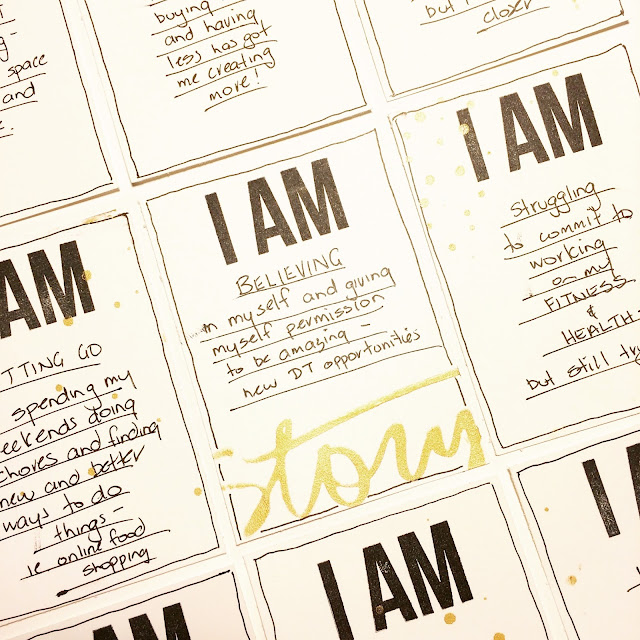 space
and
buying
and having
less has got
me creating
more!
but
closer
AM
TTING GO
spending my
weekends doing
chores and finding
new and better
ways to do
things -
ie online food
shopping
I AM
BELIEVING
in myself and giving
myself permission
to be amazing -
new DT opportunities
story
I AM
Struggling
to commit to
working
on my
FITNESS
&
HEALTH
but still
AM
I AM
I